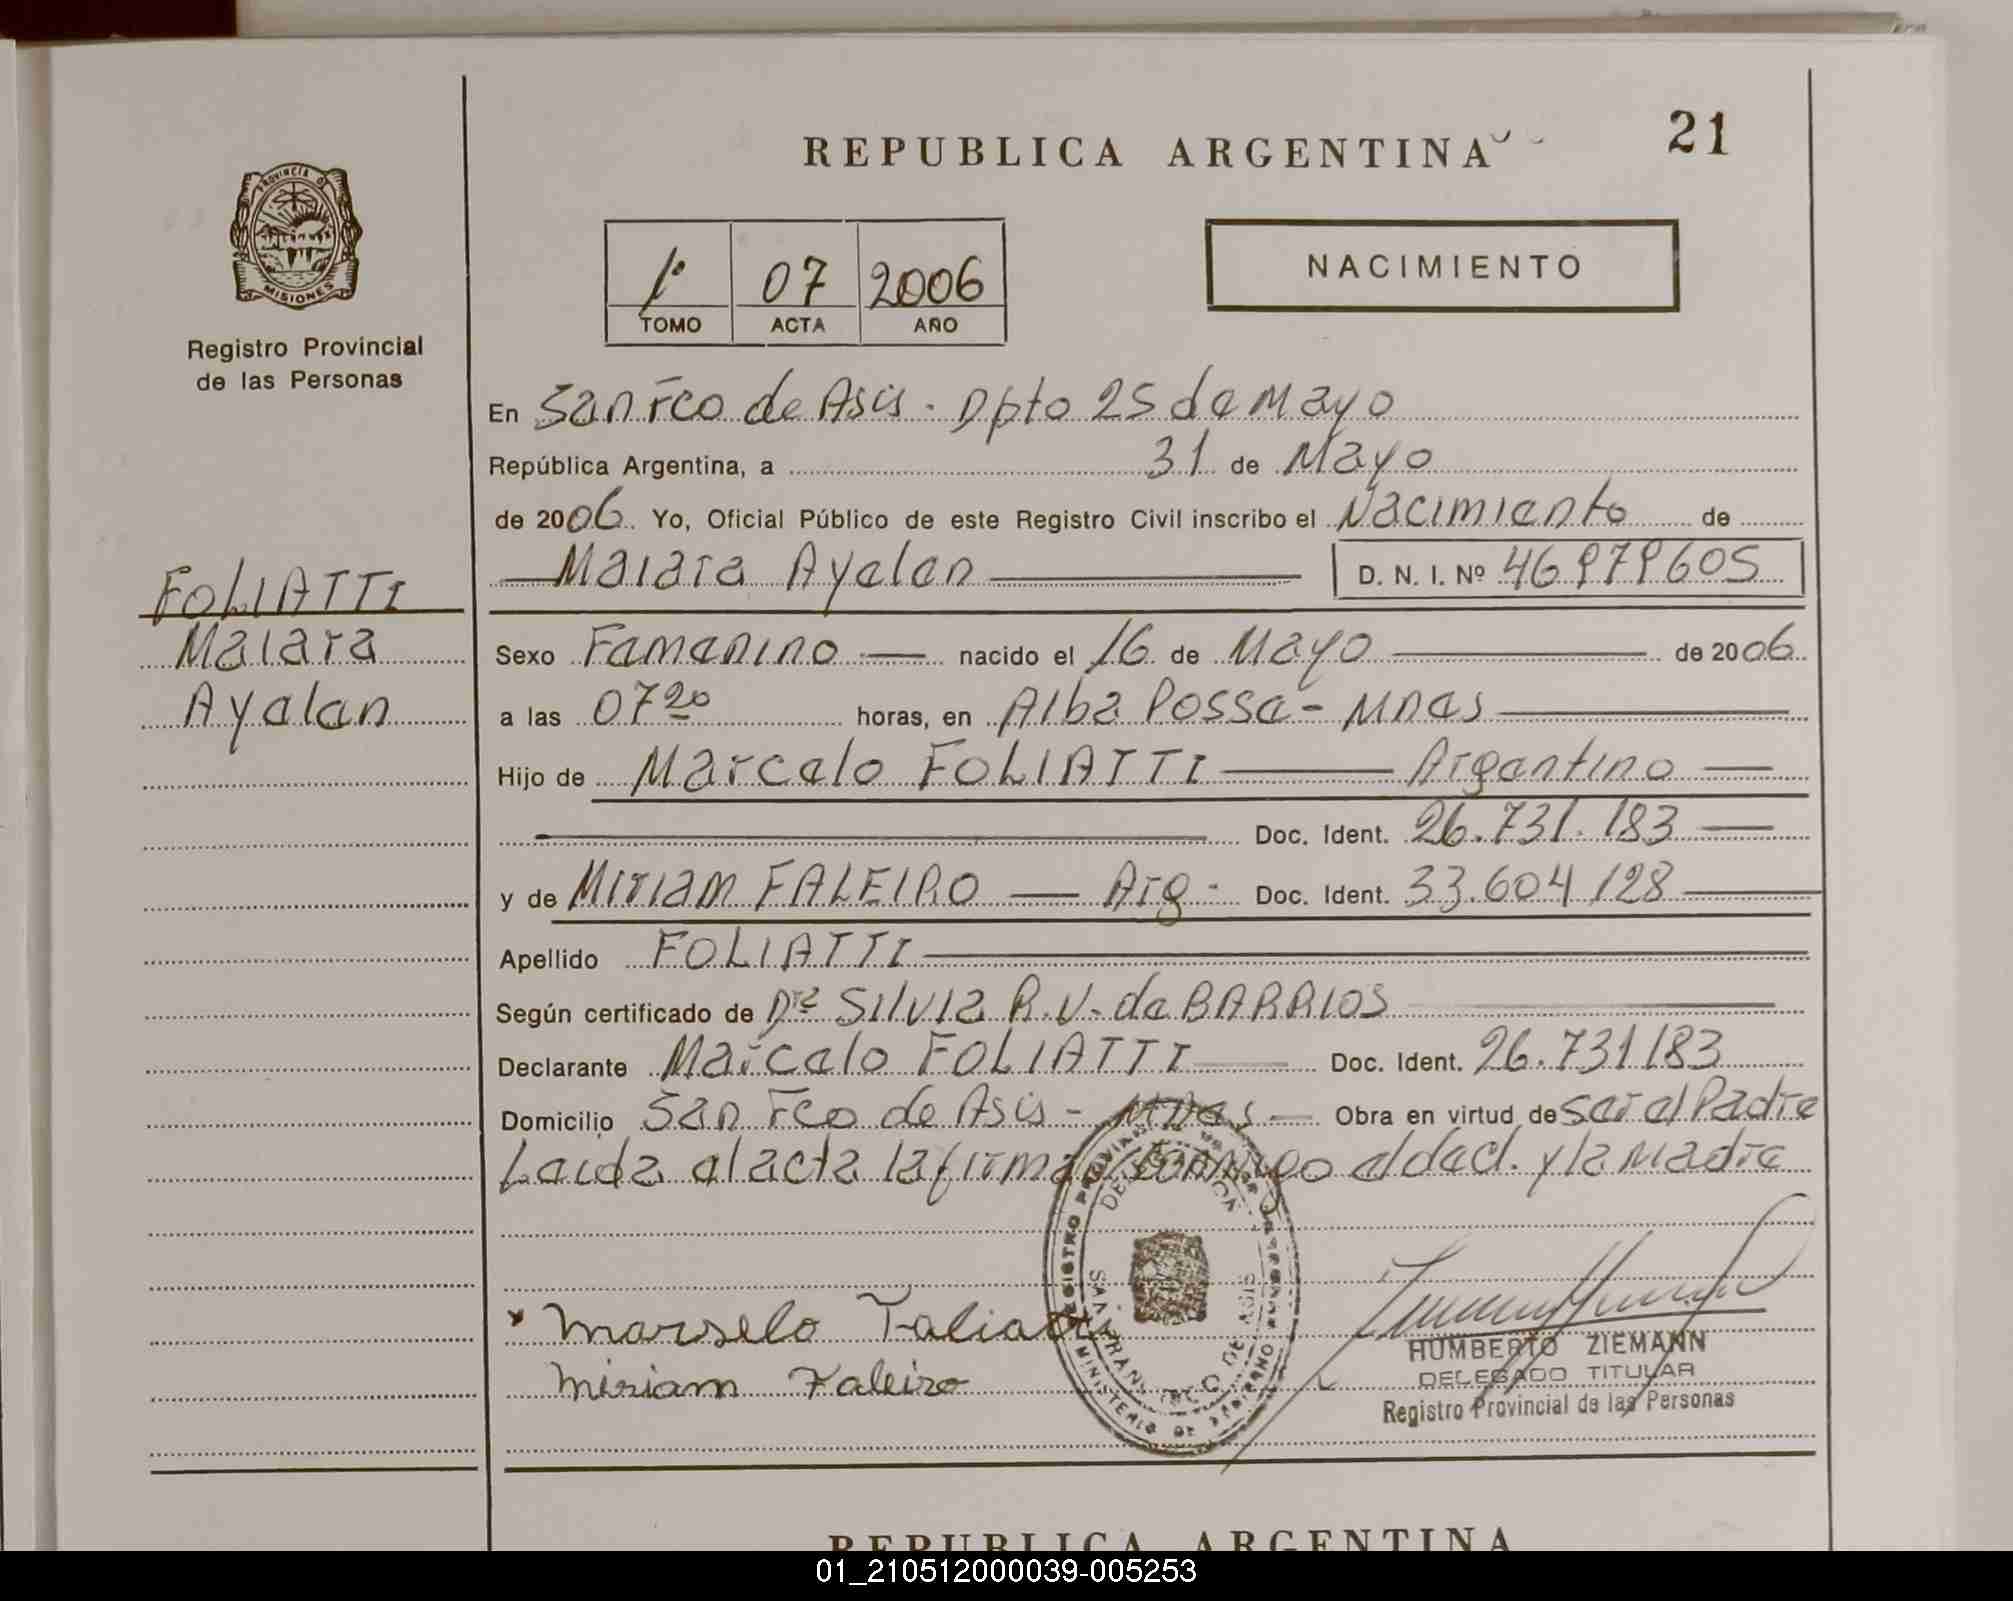 21
REPUBLICA ARGENTINA
PROVINCIA DE
MISIONES
Registro Provincial
de las Personas
1º 07 2006
TOMO ACTA AÑO
NACIMIENTO
En San Fco de Asis - Dpto 25 de Mayo
República Argentina, a 31 de Mayo
de 2006. Yo, Oficial Público de este Registro Civil inscribo el Nacimiento de
Maiara Ayelen D. N. I. Nº 46979605
FOLIATTI
Maiara
Ayelen
Sexo Femenino nacido el 16 de Mayo de 2006
a las 07 20 horas, en Alba Posse - Mnes
Hijo de Marcelo FOLIATTI Argentino
Doc. Ident. 26.731.183
y de Miriam FALEIRO Arg - Doc. Ident. 33.604.128
Apellido FOLIATTI
Según certificado de Dra SILVIA R.V. de BARRIOS
Declarante Marcelo FOLIATTI Doc. Ident. 26.731.183
Domicilio San Fco de Asis - Mnes Obra en virtud de ser el Padre
Leida el acta la firma conmigo el decl. y la Madre
Marselo Faliatti
Miriam Faleiro
REGISTRO PROVINCIAL
SAN FRANCISCO DE ASIS
MINISTERIO DE GOBIERNO
HUMBERTO ZIEMANN
DELEGADO TITULAR
Registro Provincial de las Personas
REPUBLICA ARGENTINA
01_210512000039-005253